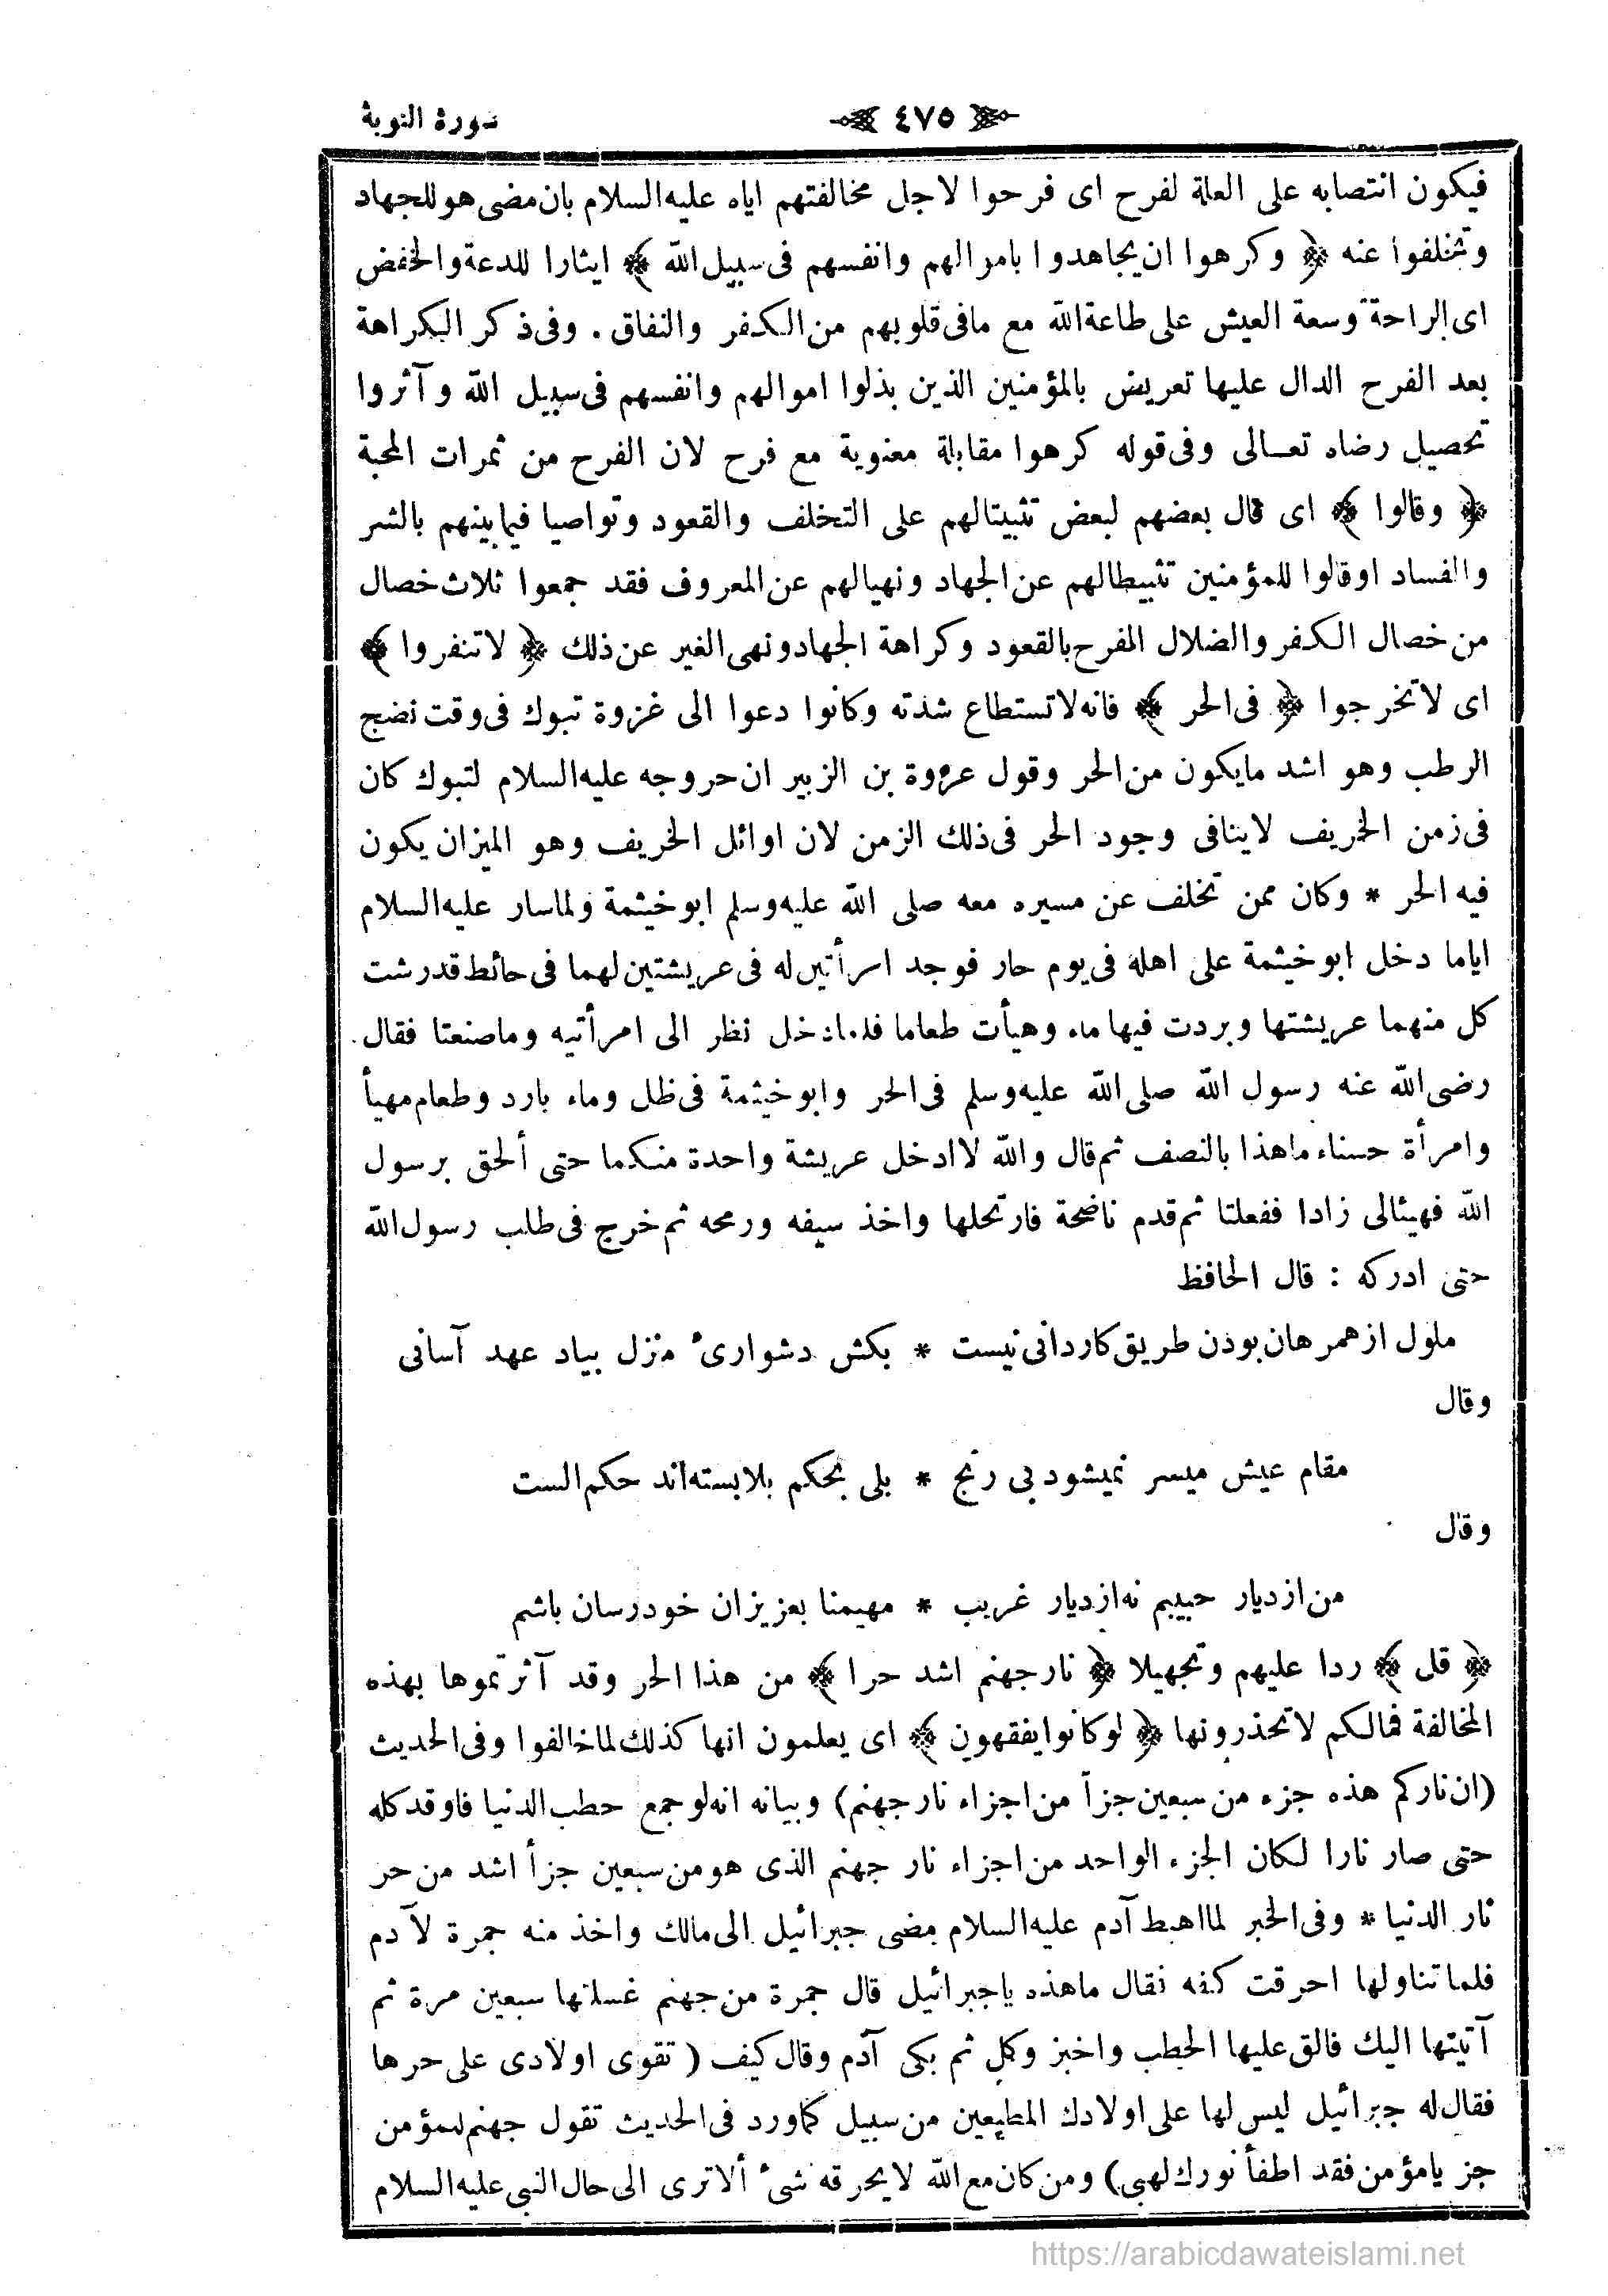 سورة التوبة ٤٧٥
فيكون انتصابه على العلة لفرح اى فرحوا لاجل مخالفتهم اياه عليه السلام بان مضى هو للجهاد
وتخلفوا عنه ﴿ وكرهوا ان يجاهدوا باموالهم وانفسهم فى سبيل الله ﴾ ايثارا للدعة والخفض
اى الراحة وسعة العيش على طاعة الله مع مافى قلوبهم من الكفر والنفاق . وفى ذكر الكراهة
بعد الفرح الدال عليها تعريض بالمؤمنين الذين بذلوا اموالهم وانفسهم فى سبيل الله وآثروا
تحصيل رضاه تعالى وفى قوله كرهوا مقابلة معنوية مع فرح لان الفرح من ثمرات المحبة
﴿ وقالوا ﴾ اى قال بعضهم لبعض تثبيتالهم على التخلف والقعود وتواصيا فيما بينهم بالشر
والفساد اوقالوا للمؤمنين تثبيطالهم عن الجهاد ونهيالهم عن المعروف فقد جمعوا ثلاث خصال
من خصال الكفر والضلال المفرح بالقعود وكراهة الجهاد ونهى الغير عن ذلك ﴿ لاتنفروا ﴾
اى لاتخرجوا ﴿ فى الحر ﴾ فانه لاتستطاع شدته وكانوا دعوا الى غزوة تبوك فى وقت نضج
الرطب وهو اشد مايكون من الحر وقول عروة بن الزبير ان حروجه عليه السلام لتبوك كان
فى زمن الخريف لاينافى وجود الحر فى ذلك الزمن لان اوائل الخريف وهو الميزان يكون
فيه الحر * وكان ممن تخلف عن مسيره معه صلى الله عليه وسلم ابوخيثمة ولماسار عليه السلام
اياما دخل ابوخيثمة على اهله فى يوم حار فوجد امرأتين له فى عريشتين لهما فى حائط قدرشت
كل منهما عريشتها وبردت فيها ماء وهيأت طعاما فلما دخل نظر الى امرأتيه وماصنعتا فقال
رضى الله عنه رسول الله صلى الله عليه وسلم فى الحر وابوخيثمة فى ظل وماء بارد وطعام مهيأ
وامرأة حسناء ماهذا بالنصف ثم قال والله لاادخل عريشة واحدة منكما حتى ألحق برسول
الله فهيئالى زادا ففعلتا ثم قدم ناضحة فارتحلها واخذ سيفه ورمحه ثم خرج فى طلب رسول الله
حتى ادركه : قال الحافظ
ملول از همرهان بودن طريق كاردانى نيست * بكش دشوارىٔ منزل بياد عهد آسانى
وقال
مقام عيش ميسر نميشود بى رنج * بلى بحكم بلا بسته‌اند حكم الست
وقال
من از ديار حبيبم نه از ديار غريب * مهيمنا بعزيزان خود رسان باشم
﴿ قل ﴾ ردا عليهم وتجهيلا ﴿ نار جهنم اشد حرا ﴾ من هذا الحر وقد آثرتموها بهذه
المخالفة فمالكم لاتحذرونها ﴿ لوكانوا يفقهون ﴾ اى يعلمون انها كذلك لماخالفوا وفى الحديث
(ان ناركم هذه جزء من سبعين جزأ من اجزاء نار جهنم) وبيانه انه لوجمع حطب الدنيا فاوقد كله
حتى صار نارا لكان الجزء الواحد من اجزاء نار جهنم الذى هو من سبعين جزأ اشد من حر
نار الدنيا * وفى الخبر لما اهبط آدم عليه السلام مضى جبرائيل الى مالك واخذ منه جمرة لآدم
فلما تناولها احرقت كفه فقال ماهذه ياجبرائيل قال جمرة من جهنم غسلتها سبعين مرة ثم
آتيتها اليك فالق عليها الحطب واخبز وكل ثم بكى آدم وقال كيف ( تقوى اولادى على حرها
فقال له جبرائيل ليس لها على اولادك المطيعين من سبيل كماورد فى الحديث تقول جهنم للمؤمن
جز يامؤمن فقد اطفأ نورك لهبى) ومن كان مع الله لايحرقه شىٔ ألاترى الى حال النبى عليه السلام
https://arabicdawateislami.net